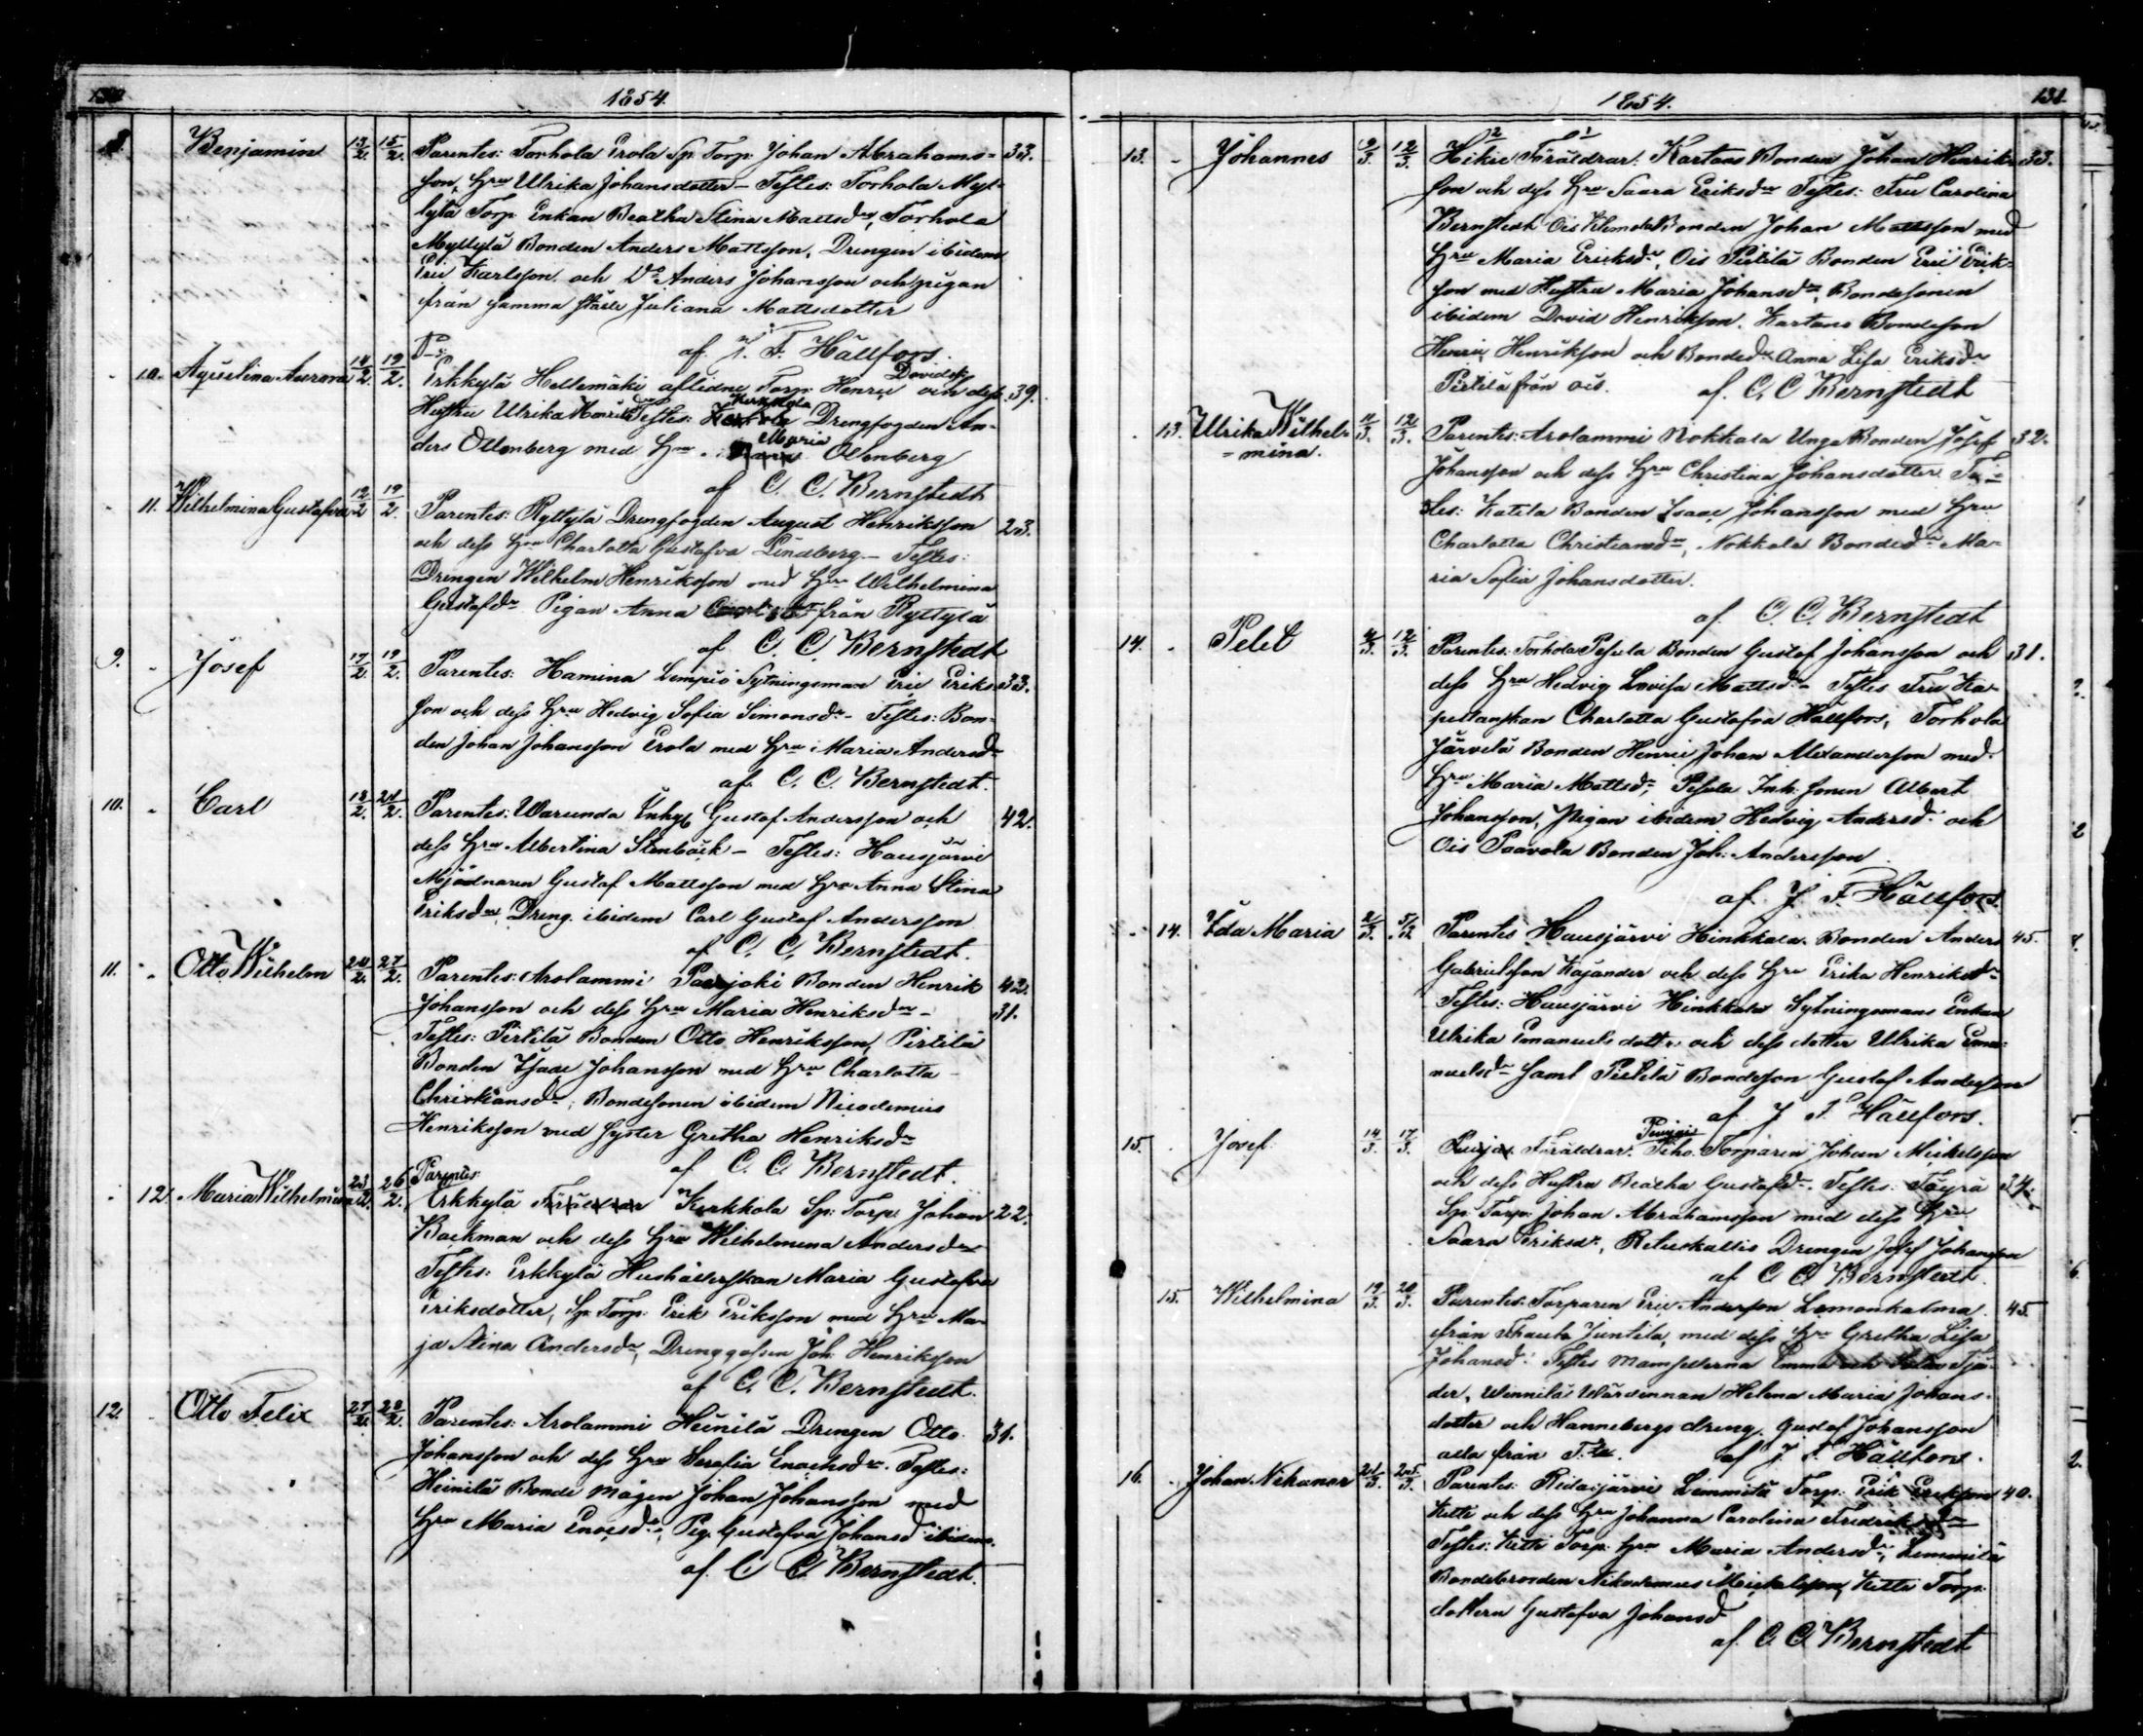 130
1854.
8. Benjamin 13/2. 15/2. Parentes: Torhola Erola Sp. Torp. Johan Abrahams- 33.
son, Hru Ulrika Johansdotter – Testes: Torhola Myl-
lylä Torp. Enkan Beatha Stina Mattsdr, Torhola
Myllylä Bonden Anders Mattsson, Drengen ibidem
Eric Karlsson och Do Anders Johansson och pigan
från samma ställe Juliana Mattsdotter
af J. F. Hällfors.
10. Agustina Aurora 14/2. 19/2. Erkkylä Hellemäki aflidne Torp. Henric Davidss. och dess 39.
Hustru Ulrika Testes: Kerkkola Drengfogden An-
ders Ollenberg med Hru Maria Ollenberg
af C. C. Bernstedt
11. Wilhelmina Gustafva 12/2 19/2. Parentes: Ryttylä Drengfogden August Henriksson 23.
och dess Hru Charlotta Gustafva Lindberg – Testes:
Drengen Wilhelm Henriksson med Hru Wilhelmina
Gustafdr Pigan Anna från Ryttylä
af C. C. Bernstedt
9. Josef 17/2. 19/2. Parentes: Hamina Lempiö Sytningsman Eric Eriks- 33.
son och dess Hru Hedvig Sofia Simonsdr – Testes: Bon-
den Johan Johansson Erola med Hru Maria Andersdr
af C. C. Bernstedt.
10. Carl 18/2. 24/2. Parentes: Warunda Inhys Gustaf Andersson och 42.
dess Hru Albertina Stenbäck – Testes: Hausjärvi
Mjödnaren Gustaf Mattsson med Hru Anna Stina
Eriksdr, Dreng. ibidem Carl Gustaf Andersson
af C. C. Bernstedt.
11. Otto Wilhelm 24/2. 27/2. Parentes: Arolammi Paarjoki Bonden Henrik 42.
Johansson och dess Hru Maria Henriksdr – 31.
Testes: Pirtilä Bonden Otto Henriksson, Pirtilä
Bonden Isaac Johansson med Hru Charlotta
Christiansdr, Bondesonen ibidem Nicodemus
Henriksson med syster Gretha Henriksdr
af C. C. Bernstedt.
12. Maria Wilhelmina 23/2. 26/2. Parentes: Erkkylä Kerkkola Sp. Torp. Johan 22.
Backman och dess Hru Wilhelmina Andersdr
Testes: Erkkylä Hushållerskan Maria Gustafva
Eriksdotter, Sp. Torp. Erik Eriksson med Hru Ma-
ja Stina Andersdr, Drenggossen Joh. Henriksson
af C. C. Bernstedt.
12. Otto Felix 27/2. 28/2. Parentes: Arolammi Heinilä Drengen Otto 31.
Johansson och dess Hru Serafia Enochsdr. Testes:
Heinilä Bonde mågen Johan Johansson med
Hru Maria Enocsdr, Pig. Gustafva Johansd ibidem.
af C. C. Bernstedt.
1854. 131.
13. Johannes 9/3. 12/3. Hikie Föräldrar: Kartano Bonden Johan Henrik- 33.
son och dess Hru Saara Eriksdr Testes: Fru Carolina
Bernstedt Ois Klemola Bonden Johan Mattsson med
Hru Maria Ericksdr, Ois Pirtilä Bonden Eric Erik-
son med Hustru Maria Johansdr, Bondesonen
ibidem David Henrikson. Kartano Bondeson
Henric Henrikson och Bondedr Anna Lisa Eriksdr
Pirtilä från ois. af. C. C Bernstedt
13. Ulrika Wilhel-
mina. 11/3. 12/3. Parentes: Arolammi Nokkala Unga Bonden Josef 32.
Johansson och dess Hru Christina Johansdotter. Tes-
tes: Katila Bonden Isaac Johansson med Hru
Charlotta Christiansdr, Nokkala Bondedr Ma-
ria Sofia Johansdotter.
af C. C. Bernstedt
14. Petet 4/3. 12/3. Parentes: Torhola Pesula Bonden Gustaf Johansson och 31.
dess Hru Hedvig Lovisa Mattsdr – Testes Fru Ka-
pellanskan Charlotta Gustafva Hällfors, Torhola
Järvelä Bonden Henric Johan Alexandersson med
Hru Maria Mattsdr, Pesula Inh. sonen Albert
Johansson, Pigan ibidem Hedvig Andersd. och
Ois Paavola Bonden Joh: Andersson
af. J. F. Hällfors.
14. Ida Maria 2/3. Parentes Hausjärvi Hinkkala Bonden Anders 45.
Gabrielsson Kajander och dess Hru Erika Henriksdr
Testes: Hausjärvi Hinkkala Sytningsmans Enkan
Ulrika Emanuels dotter och dess dotter Ulrika Ema-
nuelsdr samt Pirtilä Bondeson Gustaf Andersson
af J. F. Hällfors.
15. Josef 14/3. 17/3. Föräldrar: Torparen Johan Mickelsson
och dess Hustru Beatha Gustafdr. Testes: Töyrä 34.
Sp. Torp. Johan Abrahamsson med dess Hru
Saara Eriksdr, Retuskallio Drengen Josef Johansson
af C. C. Bernstedt
15. Wilhelmina 19/3. 20/3. Parentes: Torparen Eric Andersson Lemonkalma 45
från Juntila, med dess Hru Gretha Lisa
Johansd. Testes Mamsellerna Emma och Tjä-
der, Winnilä Wärdinnan Helena Maria Johans-
dotter och Hannebergs dreng. Gustaf Johansson
alla från af J. F. Hällfors.
16. Johan Nikanor 24/3. 25/3. Parentes: Ridasjärvi Lemmilä Torp. Erik Eriksson 40.
Kitti och dess Hru Johanna Carolina Fredriksdr
Testes: Kitti Torp. Hru Maria Andersdr, Lemmilä
Bondebroden Nikodemus Mickelsson, Kitti Torp.
dottern Gustafva Johansd
af. C. C. Bernstedt